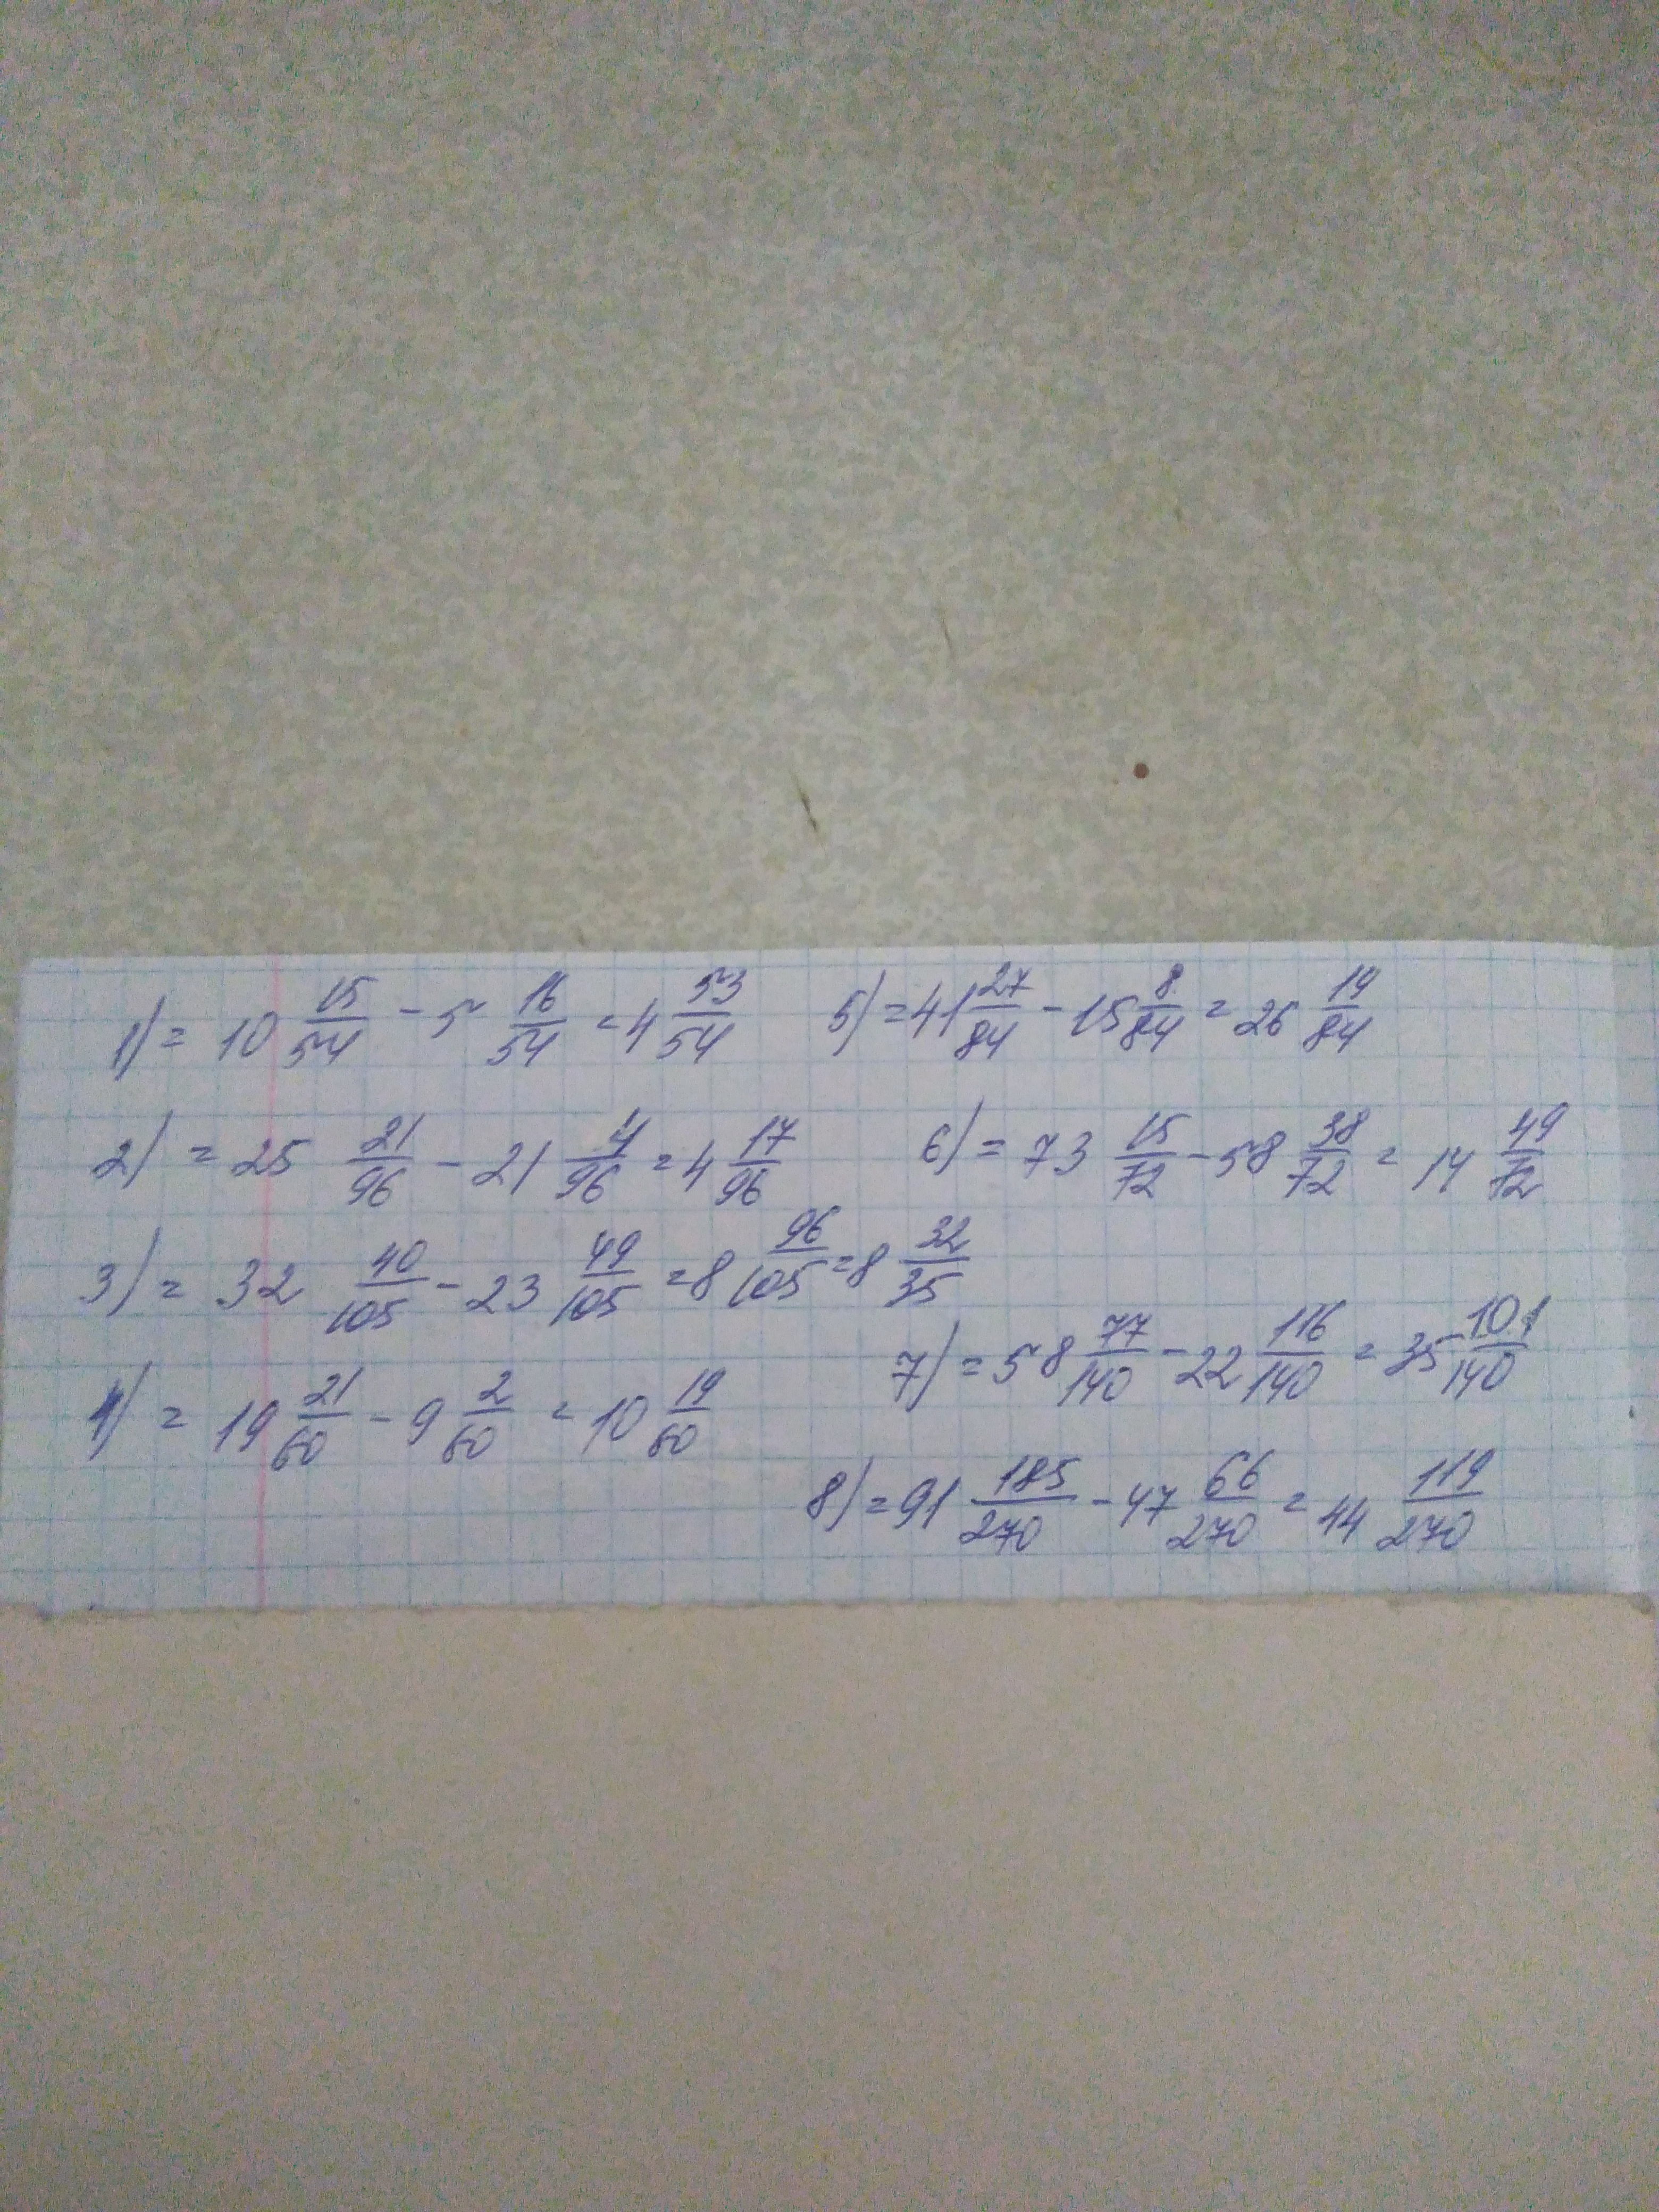 1) = 10 15/54 - 5 16/54 = 4 53/54
2) = 25 21/96 - 21 4/96 = 4 17/96
3) = 32 40/105 - 23 49/105 = 8 96/105 = 8 32/35
4) = 19 21/60 - 9 2/60 = 10 19/60
5) = 41 27/84 - 15 8/84 = 26 19/84
6) = 73 15/72 - 58 38/72 = 14 49/72
7) = 58 77/140 - 22 116/140 = 35 101/140
8) = 91 185/270 - 47 66/270 = 44 119/270